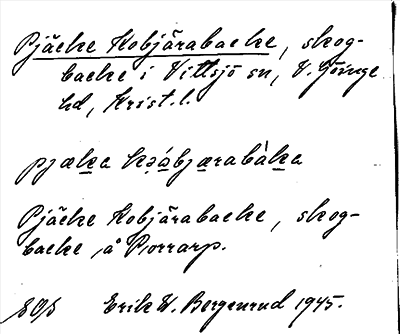 Pjäcke Kobjärabacke, skog-
backe i Vittsjö sn, V. Göinge
hd, Krist. l.
pjæka kəabjærabàka
Pjäcke Kobjärabacke, skog-
backe, å Porrarp.
Erik W. Bergenrud 1945.